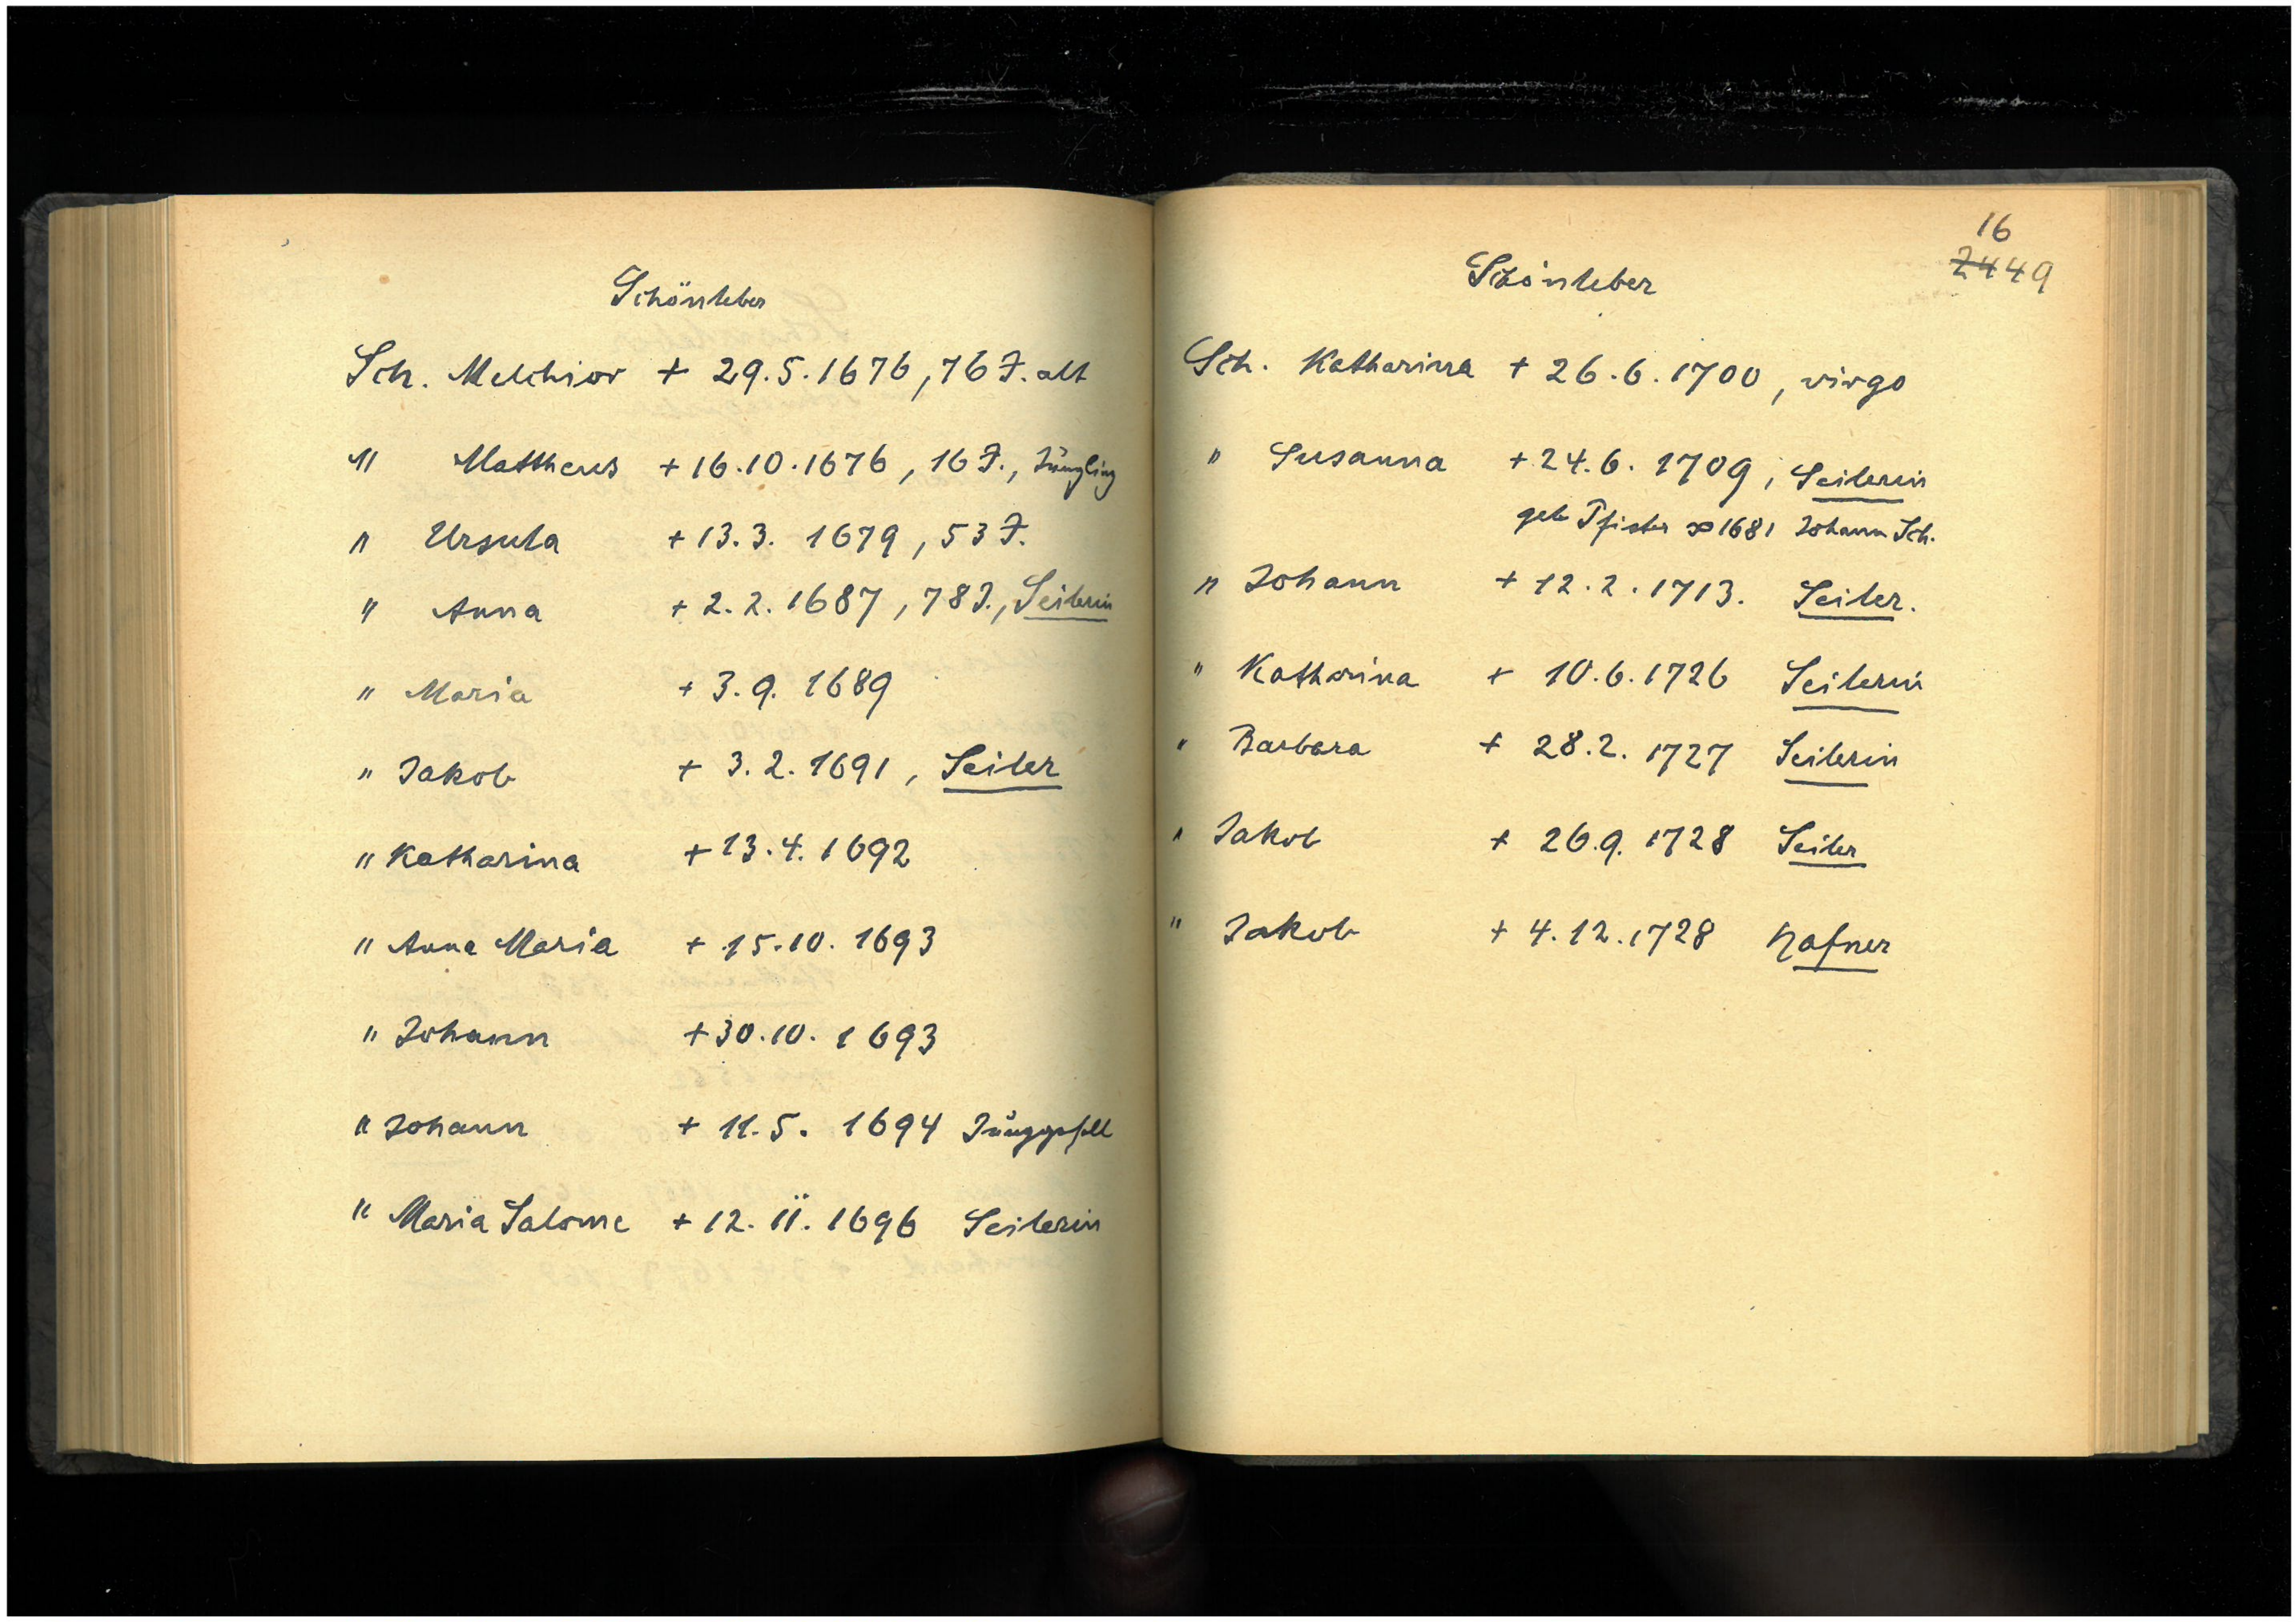 Schönleber
Sch. Melchior + 29.5.1676, 76 J. alt
" Mattheus + 16.10.1676, 16 J., Jüngling
" Ursula + 13.3. 1679, 53 J.
" Anna + 2.2.1687, 78 J., Seilerin
" Maria + 3.9. 1689
" Jakob + 3.2.1691, Seiler
" Katharina + 13.4.1692
" Anna Maria + 15.10. 1693
" Johann + 30.10. 1693
" Johann + 11.5. 1694
" Maria Salome + 12. II. 1696 Seilerin
16
2449
Schönleber
Sch. Katharina + 26.6.1700, virgo
" Susanna + 24.6. 1709, Seilerin
geb Pfister ∞ 1681 Johann Sch.
" Johann + 12.2.1713. Seiler.
" Katharina + 10.6.1726 Seilerin
" Barbara + 28.2. 1727 Seilerin
" Jakob + 26.9. 1728 Seiler
" Jakob + 4.12.1728 Hafner